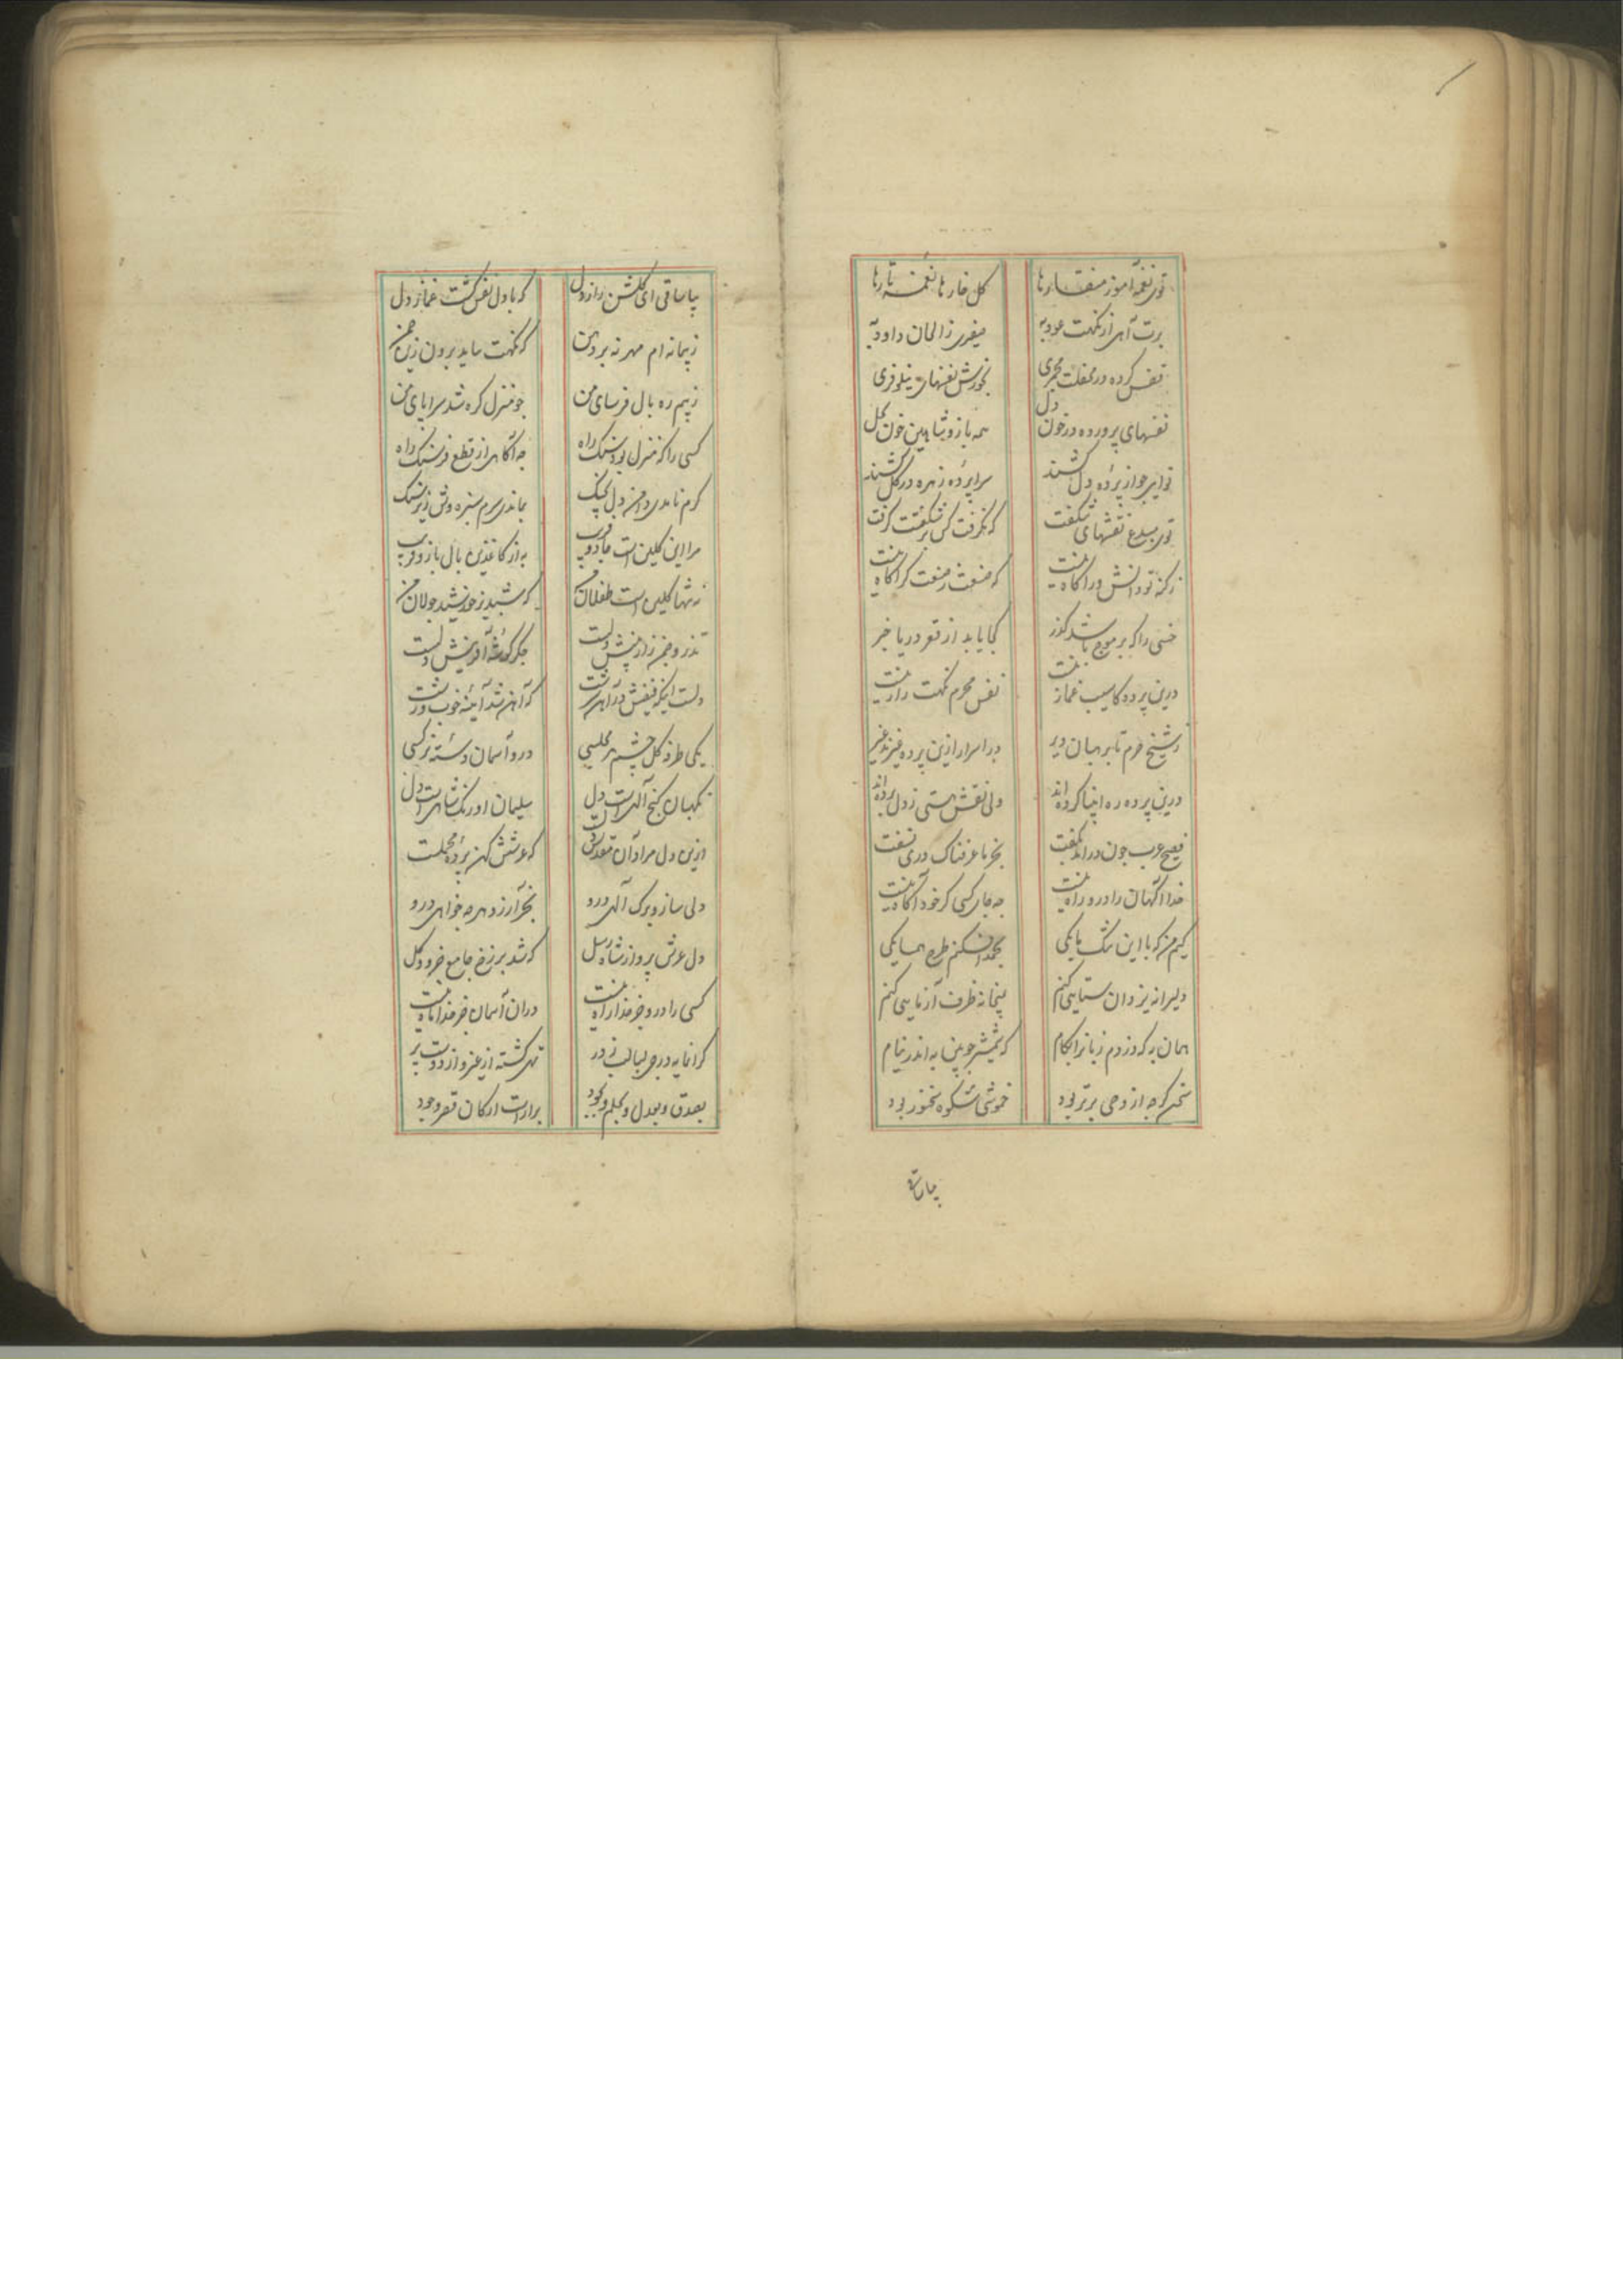 توی نغمه آموز منقارها گل خارها نغمه تارها
برت آهی از نکهت عود به صفیری ز الحان داود به
نفس کرده در محفلت مجمری نفسهای نیلوفری
نفسهای پرورده در خون دل همه باز و شاهین خون گل
نوایی جو از پرده دل کشند سراپرده زهره در گل کشند
توی مبدع نقشهای شگفت که نگرفت کس بر شگفتت گرفت
ز کنه تو دانش ور آگاه نیست که صنعت ز صنعت گر آگاه نیست
خسی را که بر موج باشد گذر کجا یابد از قعر دریا خبر
درین پرده کاسیب غماز نیست نفس محرم نکهت راز نیست
ز شیخ حرم تا برهبان دیر در اسرار ازین پرده غیرند غیر
درین پرده ره انبیا کرده‌اند ولی نقش هستی ز دل برده‌اند
فصیح عرب جون در اندر نگفت بجز ما عرفناک دری نسفت
خدا آگهان را درو راه نیست جه جای کسی کز خود آگاه نیست
کیم من که با این تنک مایکی کنم طرح همسایکی
دلیرانه یزدان ستایی کنم به پیمانه ظرف آزمایی کنم
همان به که دزدم زبان را بکام که شمشیر جوبین به اندر نیام
سخن کرجه از وحی برتر بود خموشی شکوه سخنور بود
بیا ساقی
بیا ساقی ای گلشن راز دل که با دل نفس گشت غماز دل
ز پیمانه‌ام مهر نه بر دهن که نکهت نیاید برون زین جمن
ز بیم ره بال فرسای من جو منزل گره شد سراپای من
کسی را که منزل بود سنگ راه جه آگاهی از قطع فرسنگ راه
گرم نامدی دامن دل بجنگ بماندی سرم سبزه وش زیر سنگ
مرا این گلین است جادو فریب به از کاغذین بال بازو فریب
نه تنها گلین است طفلان که شبدیز خورشید جولان من
تذرو جمن زاد بینش دلست جگر گوشه آفرینش دلست
دلست اینکه فیضش در آهن سرشت که آهن شد آیینه خوب و زشت
یکی طرفه گل جشم هر مجلسی درو آسمان دسته نرگسی
نگهبان گنج الهی است دل سلیمان اورنگ شاهی است دل
ازین دل مراد آن مقدس دلست که عرشش کهن پرده محملست
دلی ساز و برگ الهی درو بجز آرزو هر جه خواهی درو
دل عرش پرواز شاه رسل که شد برزخ جامع جزو و کل
کسی را درو جز خدا راه نیست دران آسمان جز خدا ماه نیست
گرانمایه درجی لبالب ز در تهی گشته از غیر و از دوست پر
بصدق و بعدل و بحلم و بجود برآراست ارکان قصر وجود